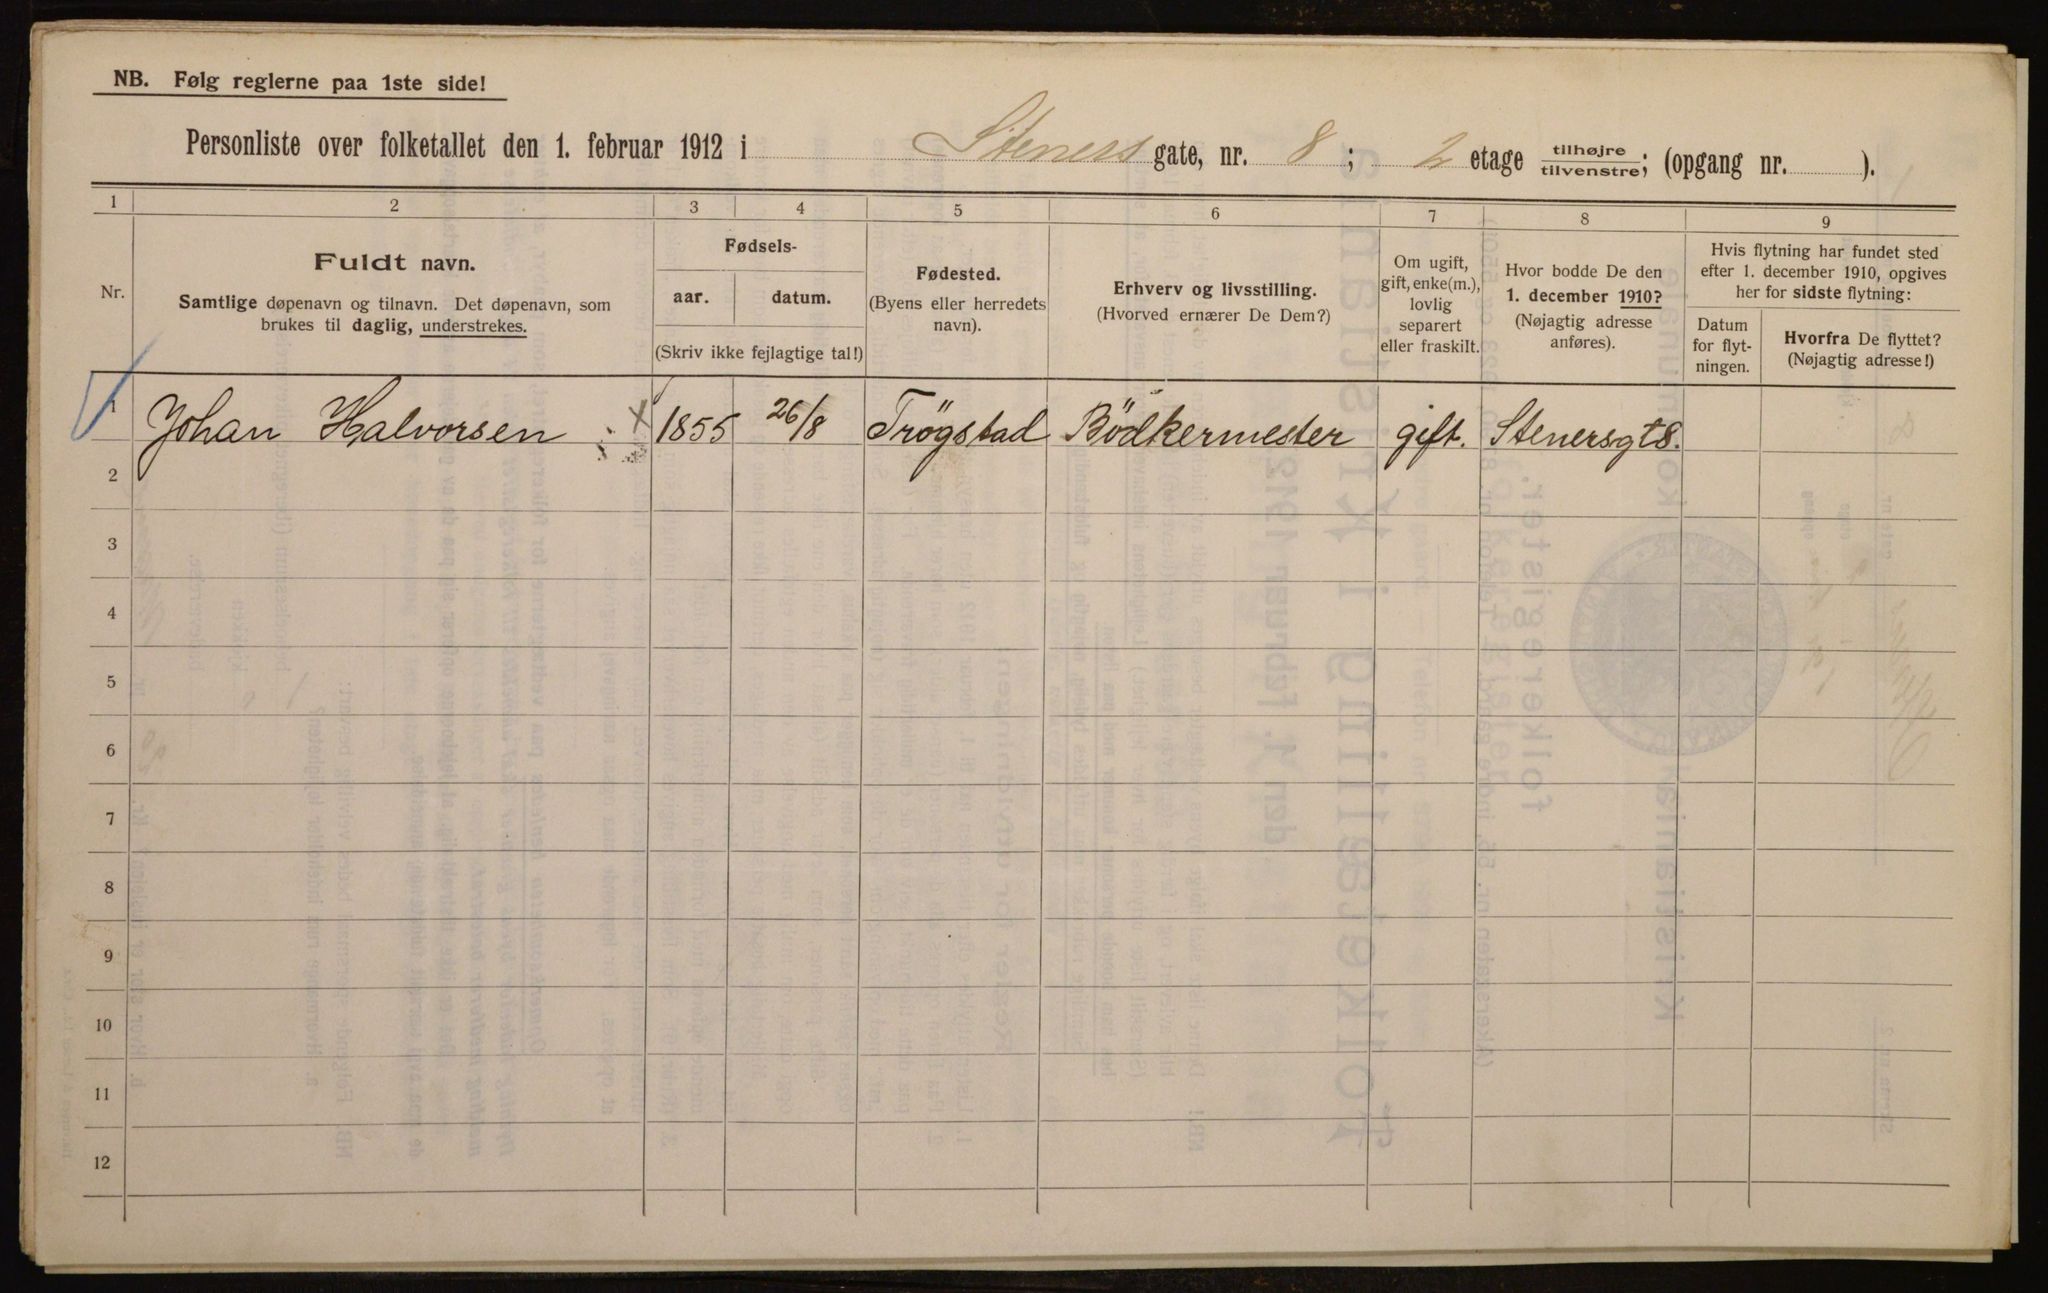 NB. Følg reglerne paa 1ste side!
Personliste over folketallet den 1. februar 1912 i Steners gate, nr. 8; 2 etage tilhøjre/tilvenstre; (opgang nr. ).
1 2 3 4 5 6 7 8 9
Nr.
Fuldt navn.
Samtlige døpenavn og tilnavn. Det døpenavn, som
brukes til daglig, understrekes.
Fødsels-
aar. datum.
(Skriv ikke fejlagtige tal!)
Fødested.
(Byens eller herredets
navn).
Erhverv og livsstilling.
(Hvorved ernærer De Dem?)
Om ugift,
gift, enke(m.),
lovlig
separert
eller fraskilt.
Hvor bodde De den
1. december 1910?
(Nøjagtig adresse
anføres).
Hvis flytning har fundet sted
efter 1. december 1910, opgives
her for sidste flytning:
Datum
for flyt-
ningen.
Hvorfra De flyttet?
(Nøjagtig adresse!)
1 Johan Halvorsen 1855 26/8 Trögstad Bödkermester gift. Stenersgt 8.
2
3
4
5
6
7
8
9
10
11
12